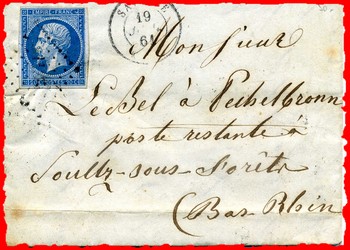 EMPIRE FRANC
19
61
Monsieur
LeBel à Pechelbronn
poste restante à
Soultz-sous-Forêts
(Bas-Rhin